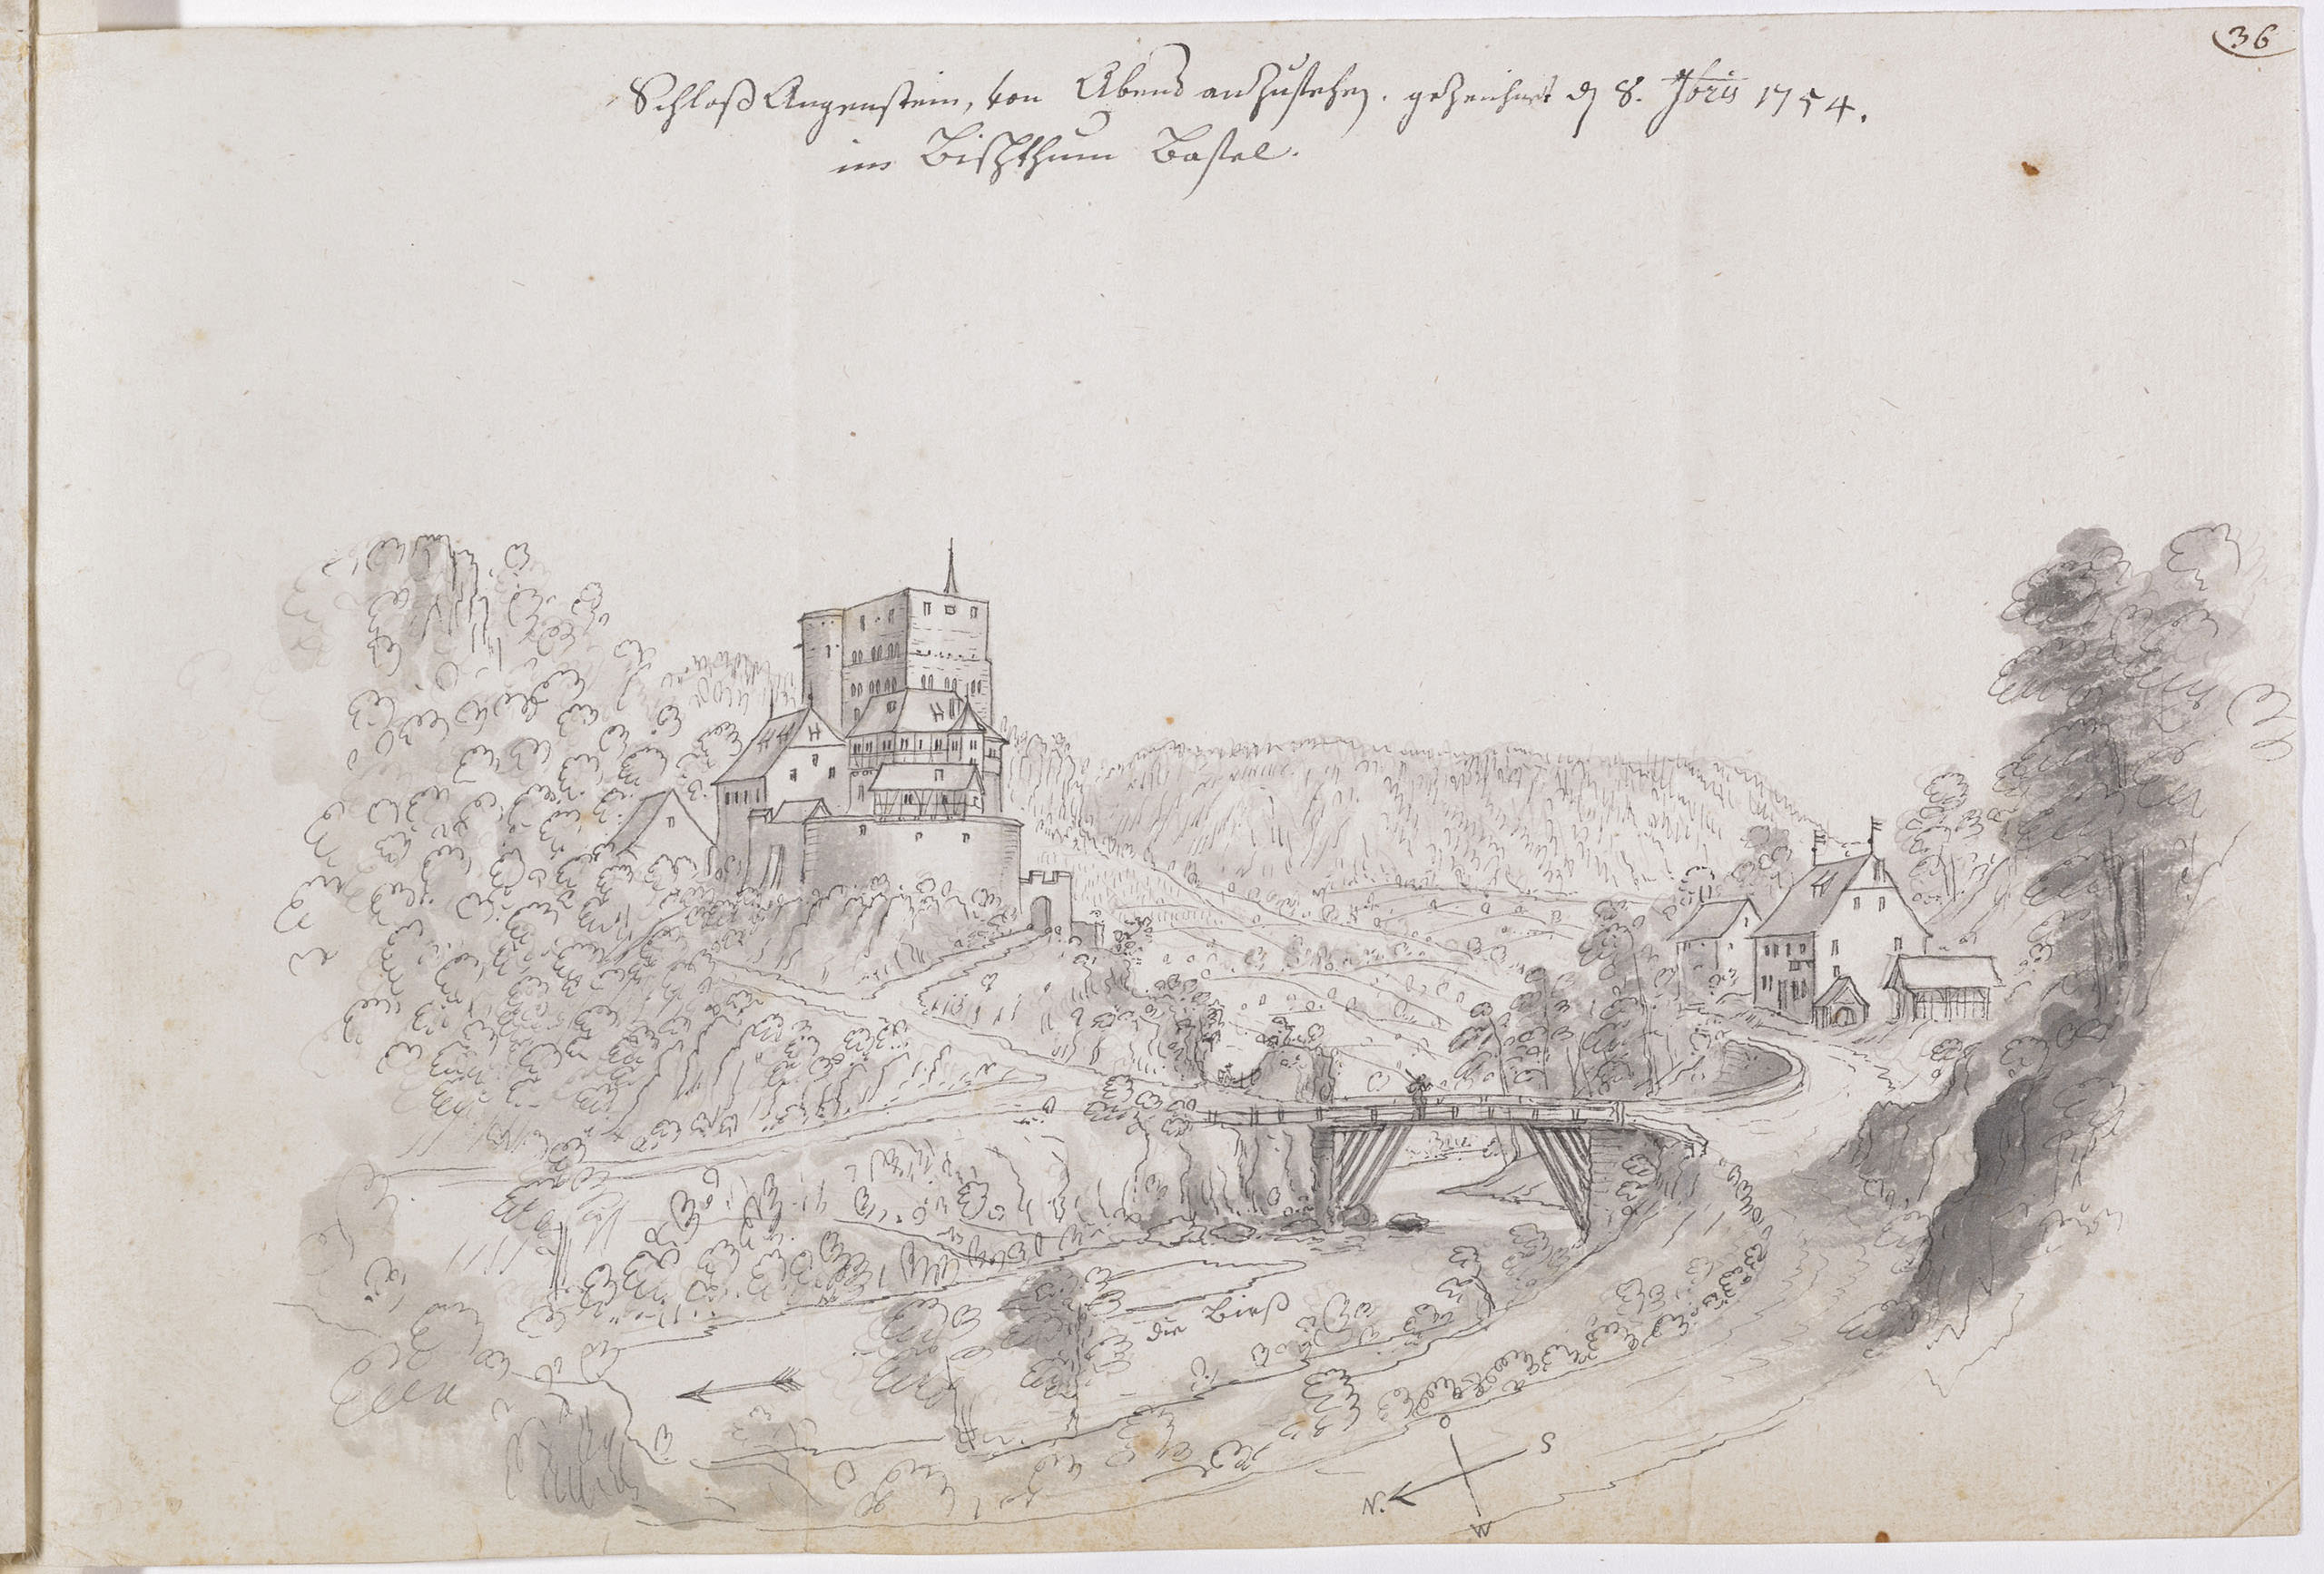 36
Schloß Angenstein, von Abend anzusehen. gezeichnet d 8. 7bris 1754.
im Bischthum Basel.
die Birß
O
S
N.
W